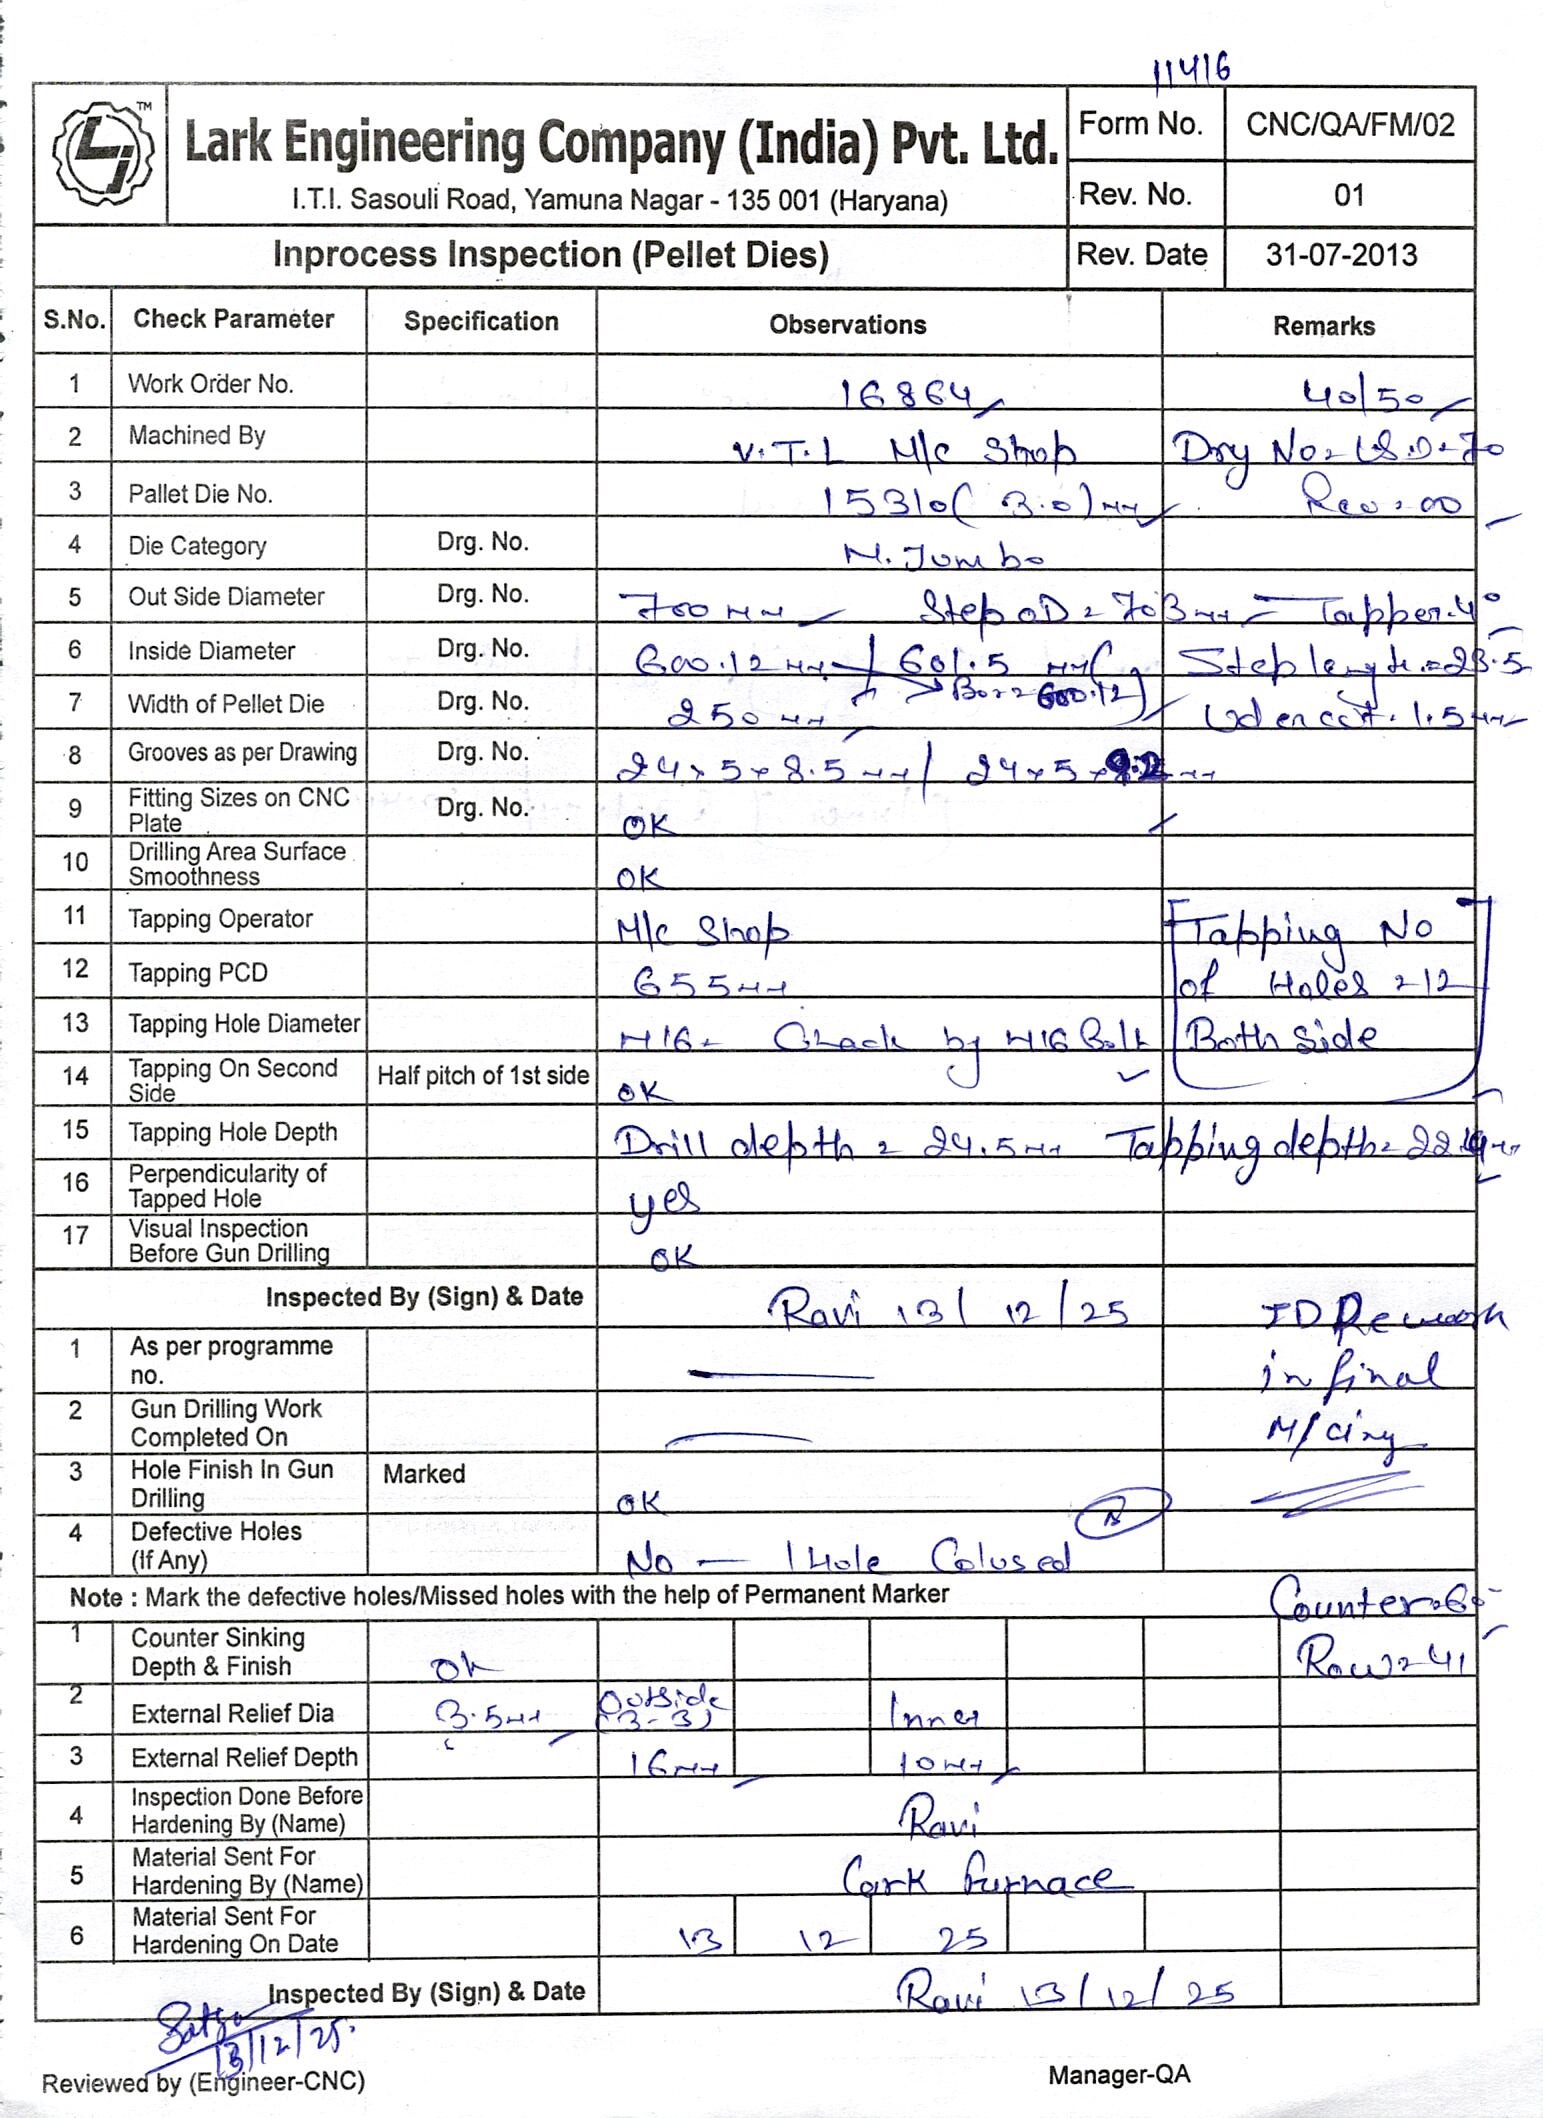 11416
TM
Lark Engineering Company (India) Pvt. Ltd.
I.T.I. Sasouli Road, Yamuna Nagar - 135 001 (Haryana)
Form No. CNC/QA/FM/02
Rev. No. 01
Inprocess Inspection (Pellet Dies) Rev. Date 31-07-2013
S.No. Check Parameter Specification Observations Remarks
1 Work Order No. 16864 40/50
2 Machined By V.T.L M/c Shop
3 Pallet Die No. 15310 (3.0) mm Rev = 00
4 Die Category Drg. No. M. Jumbo
5 Out Side Diameter Drg. No. 700 mm Step OD = 703 mm Tapper-4°
6 Inside Diameter Drg. No. 600.12 mm / 601.5 mm Step length = 23.5
7 Width of Pellet Die Drg. No. 250 mm Bor = 600.12 1.5 mm
8 Grooves as per Drawing Drg. No. 24 x 5 x 8.5 mm / 24 x 5 x 9.2 mm
9 Fitting Sizes on CNC Plate Drg. No. OK
10 Drilling Area Surface Smoothness OK
11 Tapping Operator M/c Shop Tapping No
12 Tapping PCD 655 mm of Holes = 12
13 Tapping Hole Diameter M16 - Chack by M16 Bolt Both Side
14 Tapping On Second Side Half pitch of 1st side OK
15 Tapping Hole Depth Drill depth = 24.5 mm Tapping depth =
16 Perpendicularity of Tapped Hole yes
17 Visual Inspection Before Gun Drilling OK
Inspected By (Sign) & Date Ravi 13/12/25 ID Rework
1 As per programme no. in final
2 Gun Drilling Work Completed On M/cing
3 Hole Finish In Gun Drilling Marked OK
4 Defective Holes (If Any) No - 1 Hole Colused
Note : Mark the defective holes/Missed holes with the help of Permanent Marker Counter = 60°
1 Counter Sinking Depth & Finish OK Row = 41
2 External Relief Dia 3.5 mm Outside (3-3) Inner
3 External Relief Depth 16 mm 10 mm
4 Inspection Done Before Hardening By (Name) Ravi
5 Material Sent For Hardening By (Name) Lark Furnace
6 Material Sent For Hardening On Date 13 12 25
Inspected By (Sign) & Date Ravi 13/12/25
13/12/25.
Reviewed by (Engineer-CNC) Manager-QA